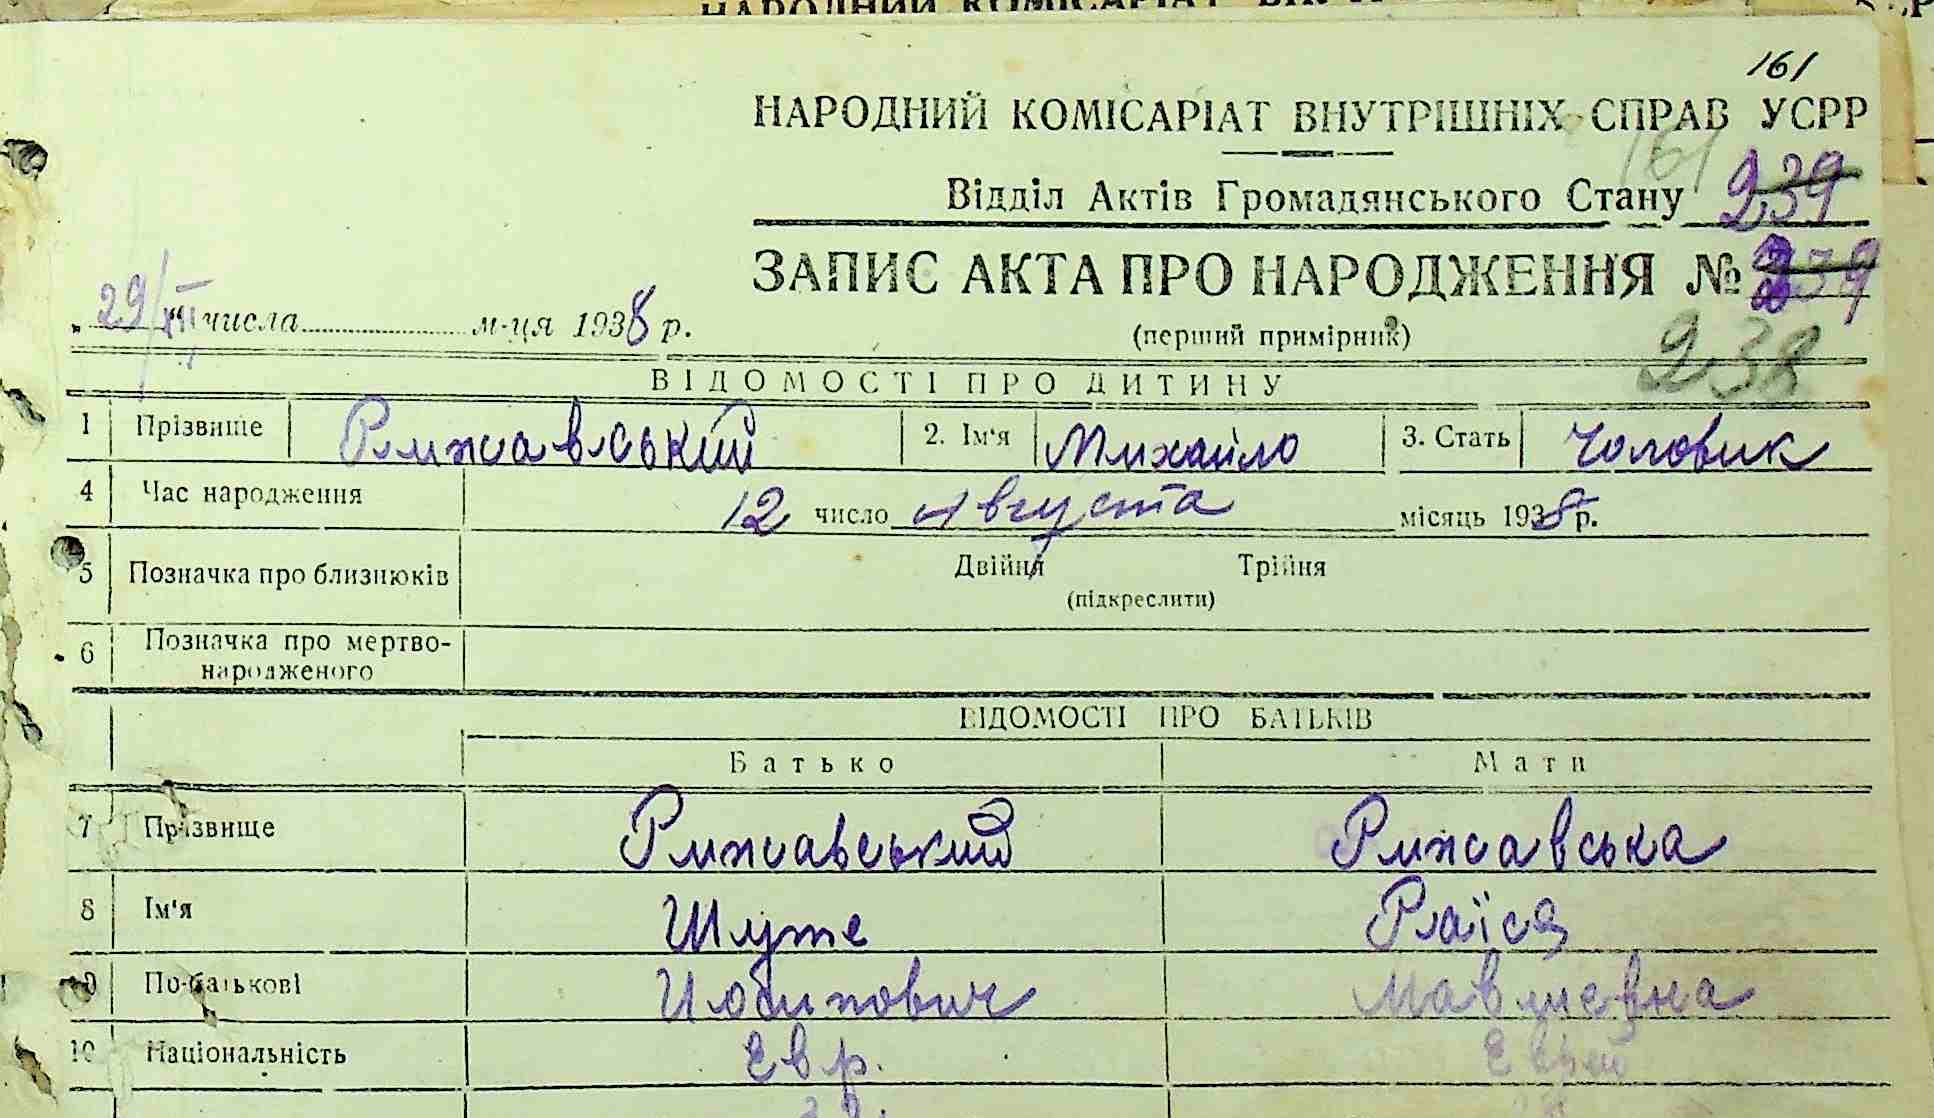 161
НАРОДНИЙ КОМІСАРІАТ ВНУТРІШНІХ СПРАВ УСРР
161
Відділ Актів Громадянського Стану 239
ЗАПИС АКТА ПРО НАРОДЖЕННЯ № 239
29/XII числа м-ця 1938 р.
(перший примірник)
238
ВІДОМОСТІ ПРО ДИТИНУ
1 Прізвище Рижавський 2. Ім'я Михайло 3. Стать Чоловик
4 Час народження 12 число Августа місяць 1938 р.
5 Позначка про близнюків Двійня Трійня
(підкреслити)
6 Позначка про мертво-
народженого
ВІДОМОСТІ ПРО БАТЬКІВ
Батько Мати
7 Прізвище Рижавський Рижавська
8 Ім'я Раїса
9 По-батькові
10 Національність Евр. Еврей